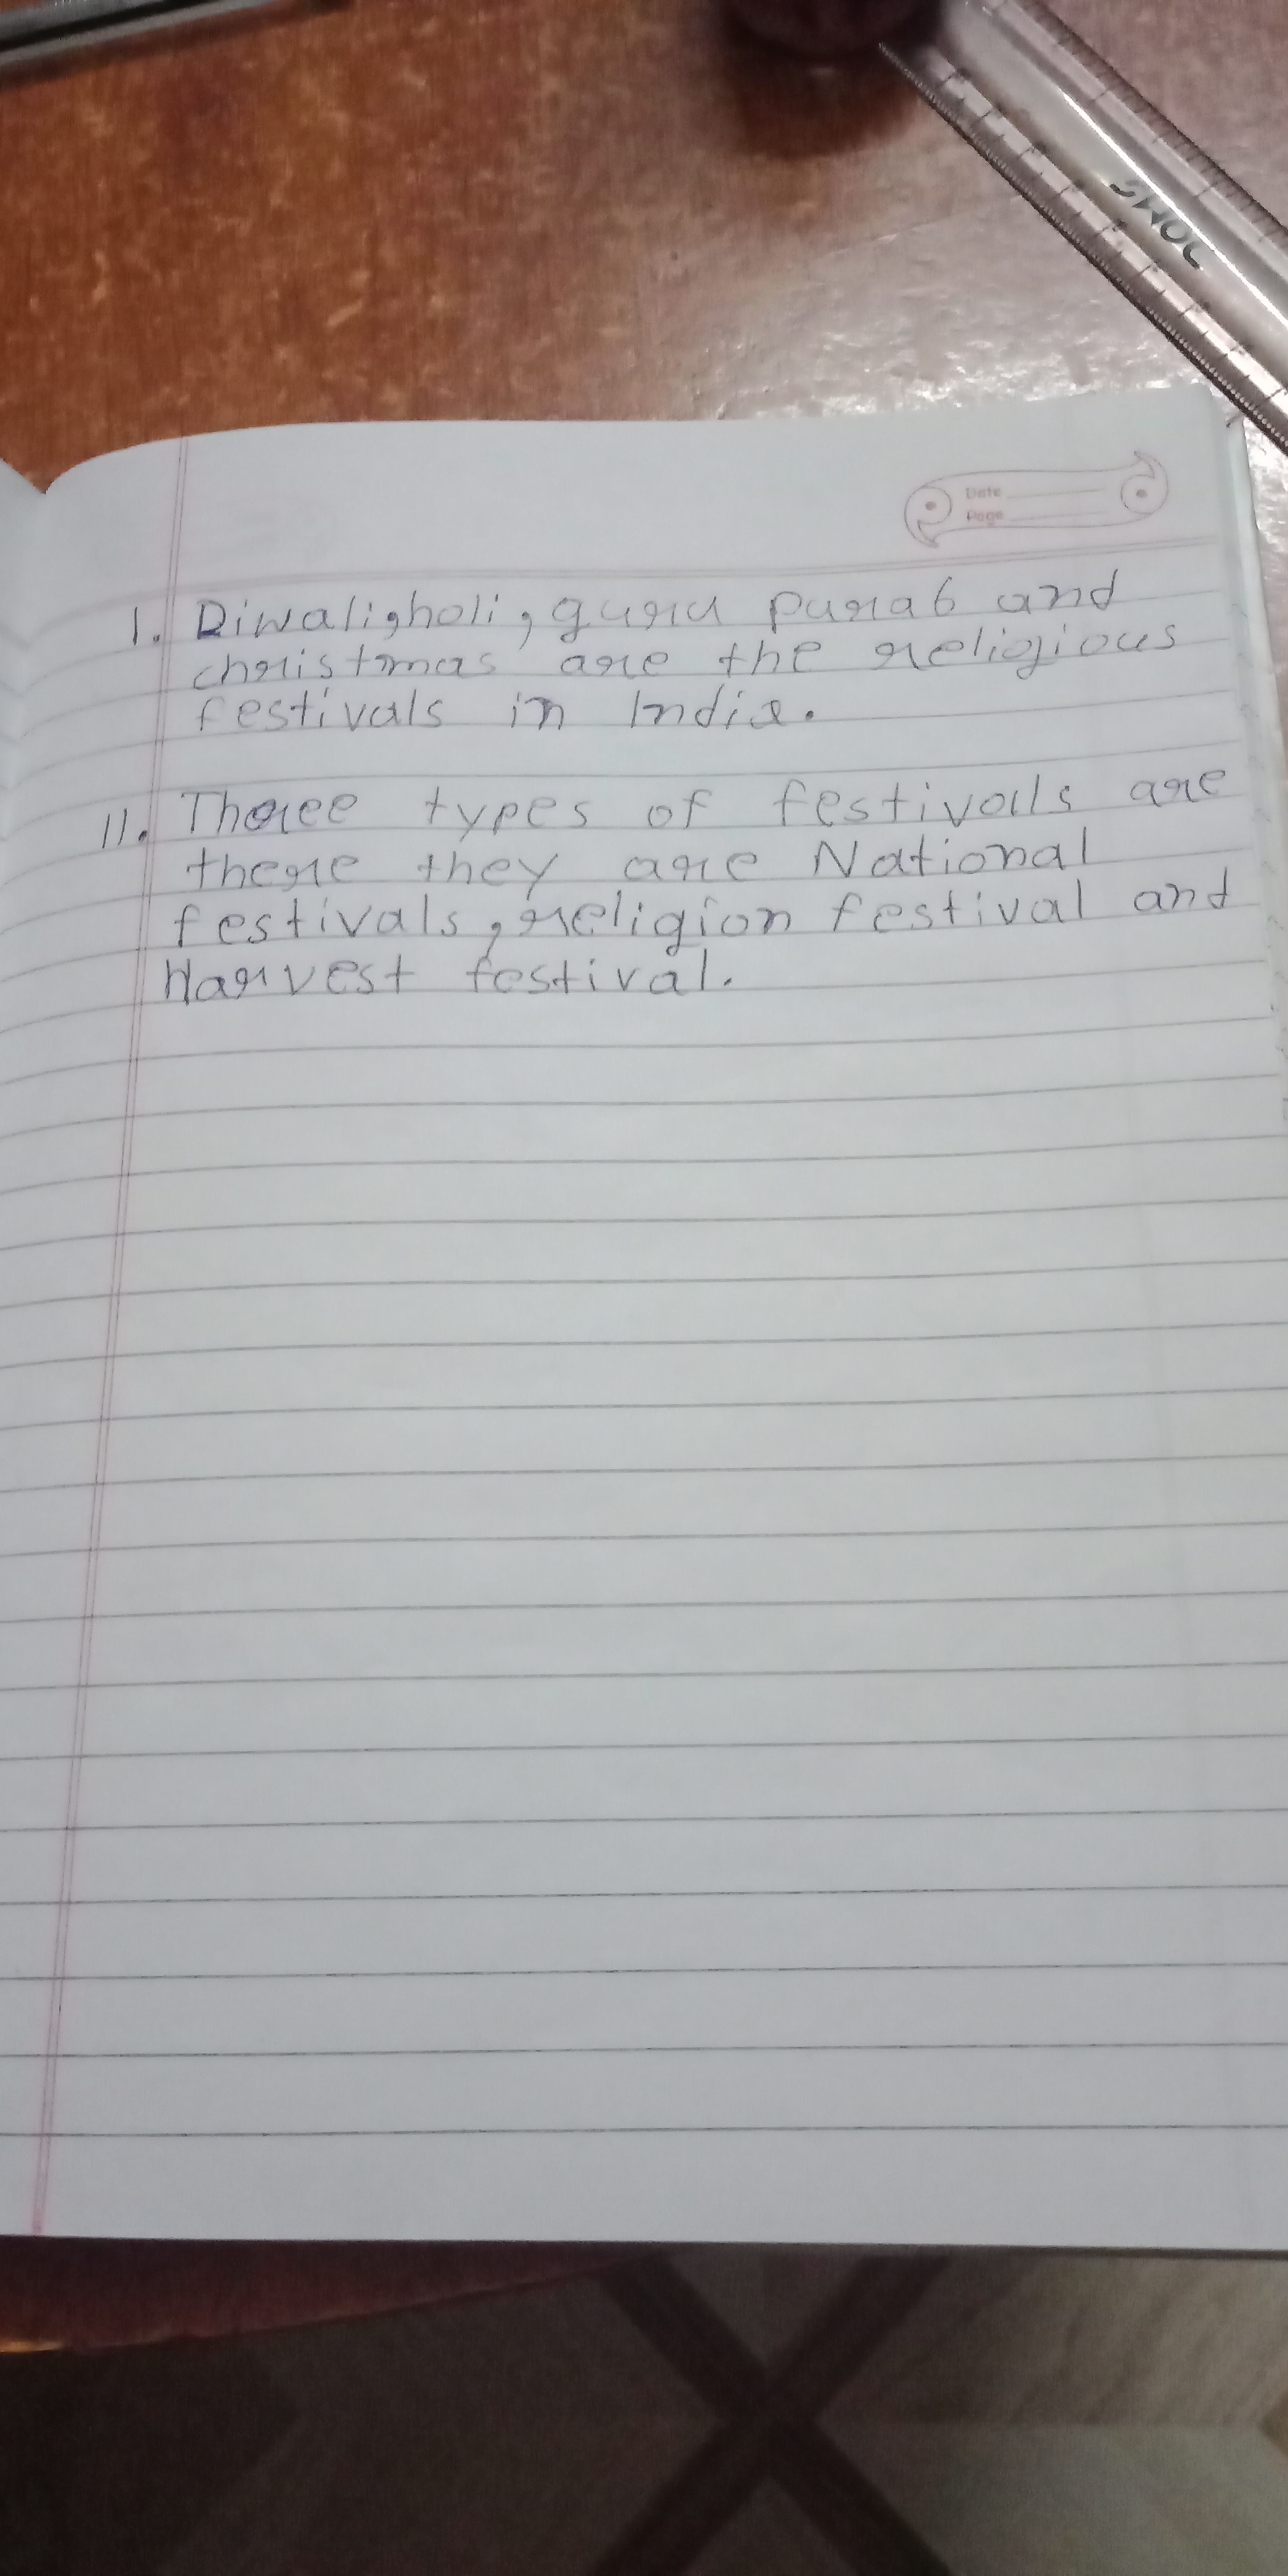 Date
Page
1. Diwali,holi, guru purab and
christmas are the religious
festivals in India.
11. Three types of festivals are
there they are National
festivals, religion festival and
Harvest festival.